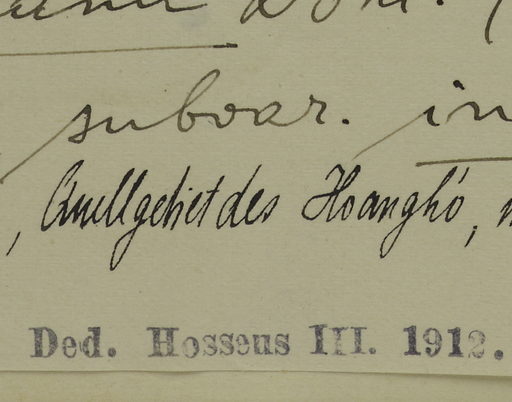 subvar. in
, Quellgebiet des Hoanghó,
Ded. Hosseus III. 1912.